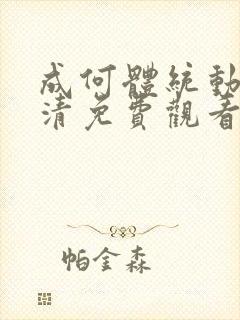 成何體統動
清免費觀看
帕金森